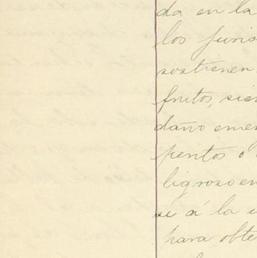 da en la
los juris
sostienen
frutos, sien
daño emer
pentos ó
ligroso en
se á la e
para obte